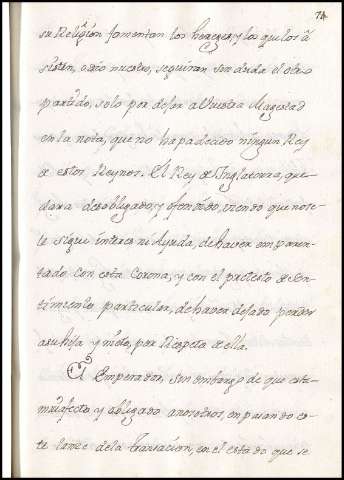 74
su Religion fomentan los hereges, y los que los a
sisten, odio nuestro, seguiran sin duda el otro
partido, solo por dejar a Vuestra Magestad
en la nota, que no ha padecido ningun Rey
de estos Reynos. El Rey de Inglaterra, que-
dara desobligado, y ofendido, viendo que no se
le sigue interes ni Ayuda, de haver emparen-
tado con esta Corona, y con el pretesto de sen-
timiento particular, de haver dejado
a su hija y nieto, por Respeto de ella.
El Emperador, sin embargo de que este
muy afecto y obligado a nosotros, en pasando es-
te lance de la transacion, en el estado que se